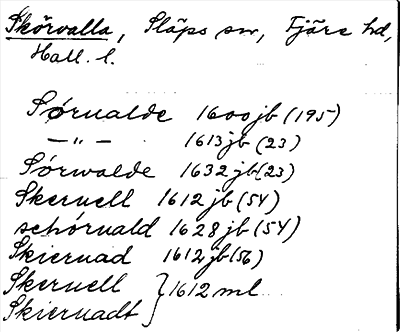 Skörvalla, Släps sn, Fjäre hd,
Hall. l.
Sörualde 1600 jb (195)
—„— 1613 jb (23)
Sörwalde 1632 jb (23)
Skeruell 1612 jb (54)
schöruald 1628 jb (54)
Skieruad 1612 jb (56)
Skeruell } 1612 ml
Skieruadt